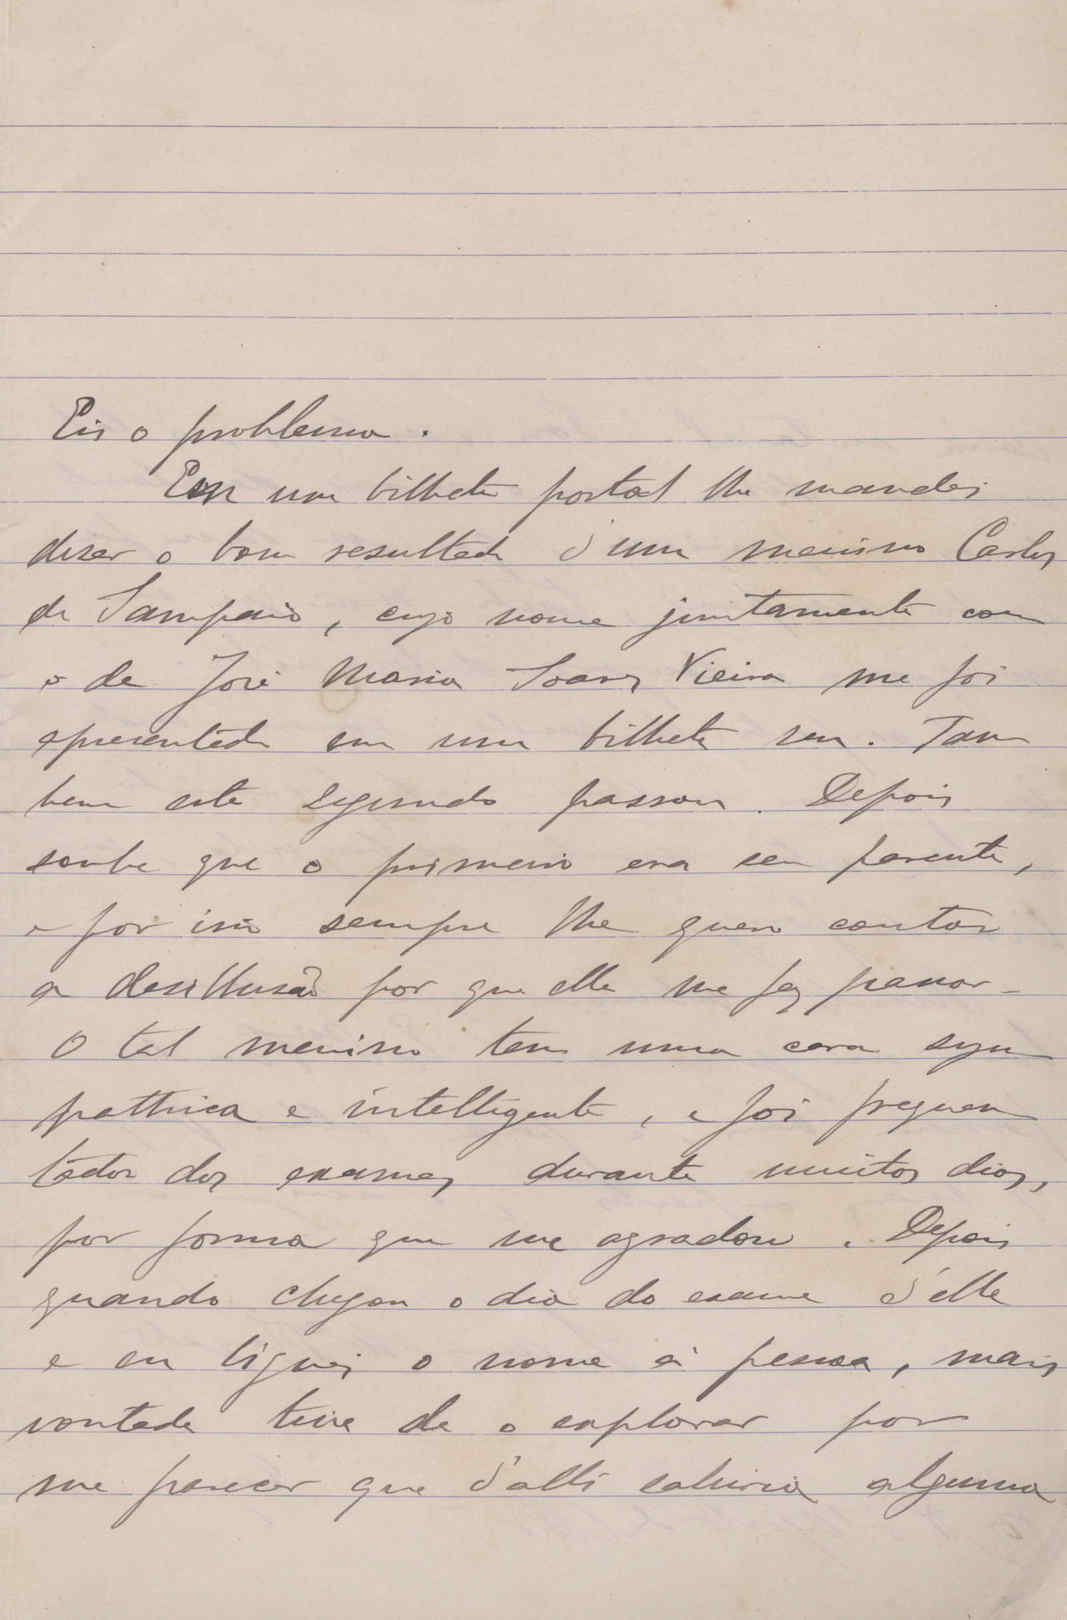 Eis o problema.
Em um bilhete postal lhe mandei
dizer o bom resultado d'um menino Carlos
de Sampaio, cujo nome juntamente com
o de José Maria Soares Vieira me foi
apresentado em um bilhete seu. Tam
bem este segundo passou. Depois
soube que o primeiro era seu parente,
e por isso sempre lhe quero contar
a desillusão por que elle me fez passar-
O tal menino tem uma cara sym
pathica e intelligente, e foi frequen
tador dos exames durante muitos dias,
por forma que me agradou. Depois
quando chegou o dia do exame d'elle
e eu liguei o nome á pessoa, mais
vontade tive de o explorar por
me parecer que d'alli sahiria alguma